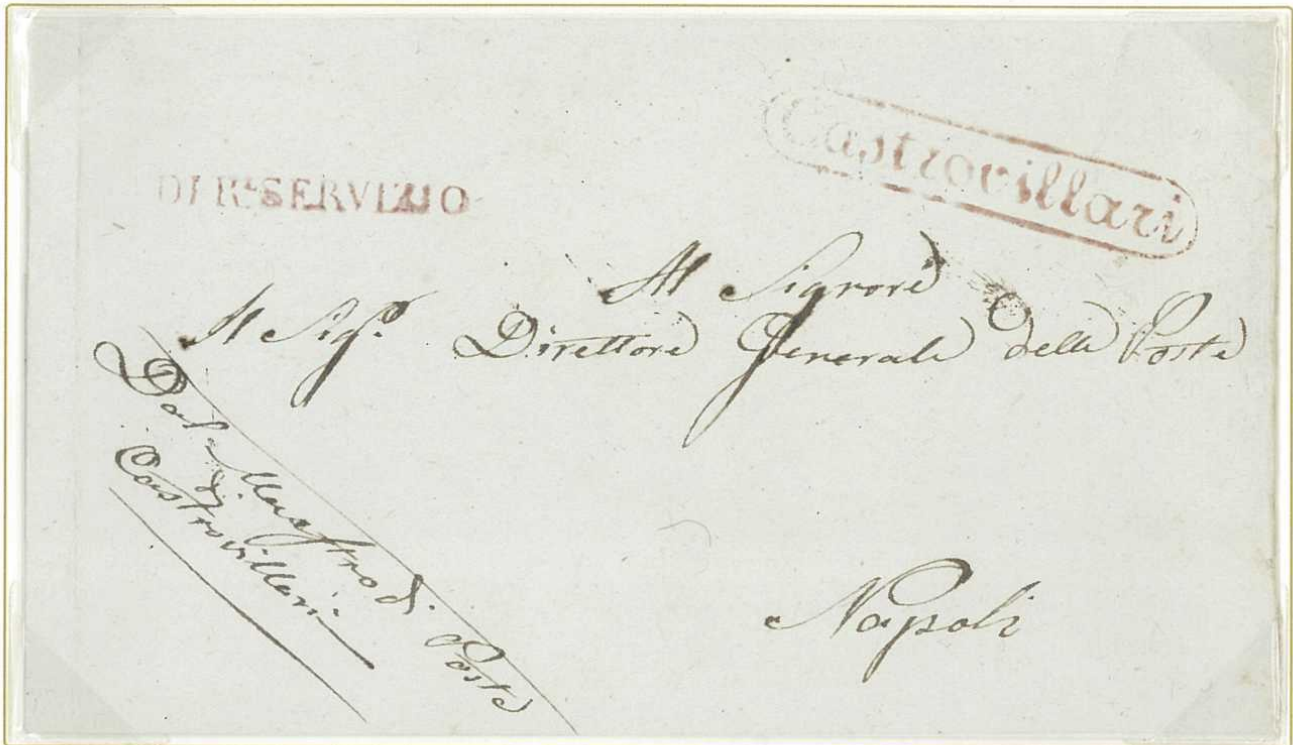 Castrovillari
DI R.^e SERVIZIO
Al Signore
Il Sig.^r Direttore Generale delle Poste
Dal Maestro di Posta
di
Castrovillari
Napoli